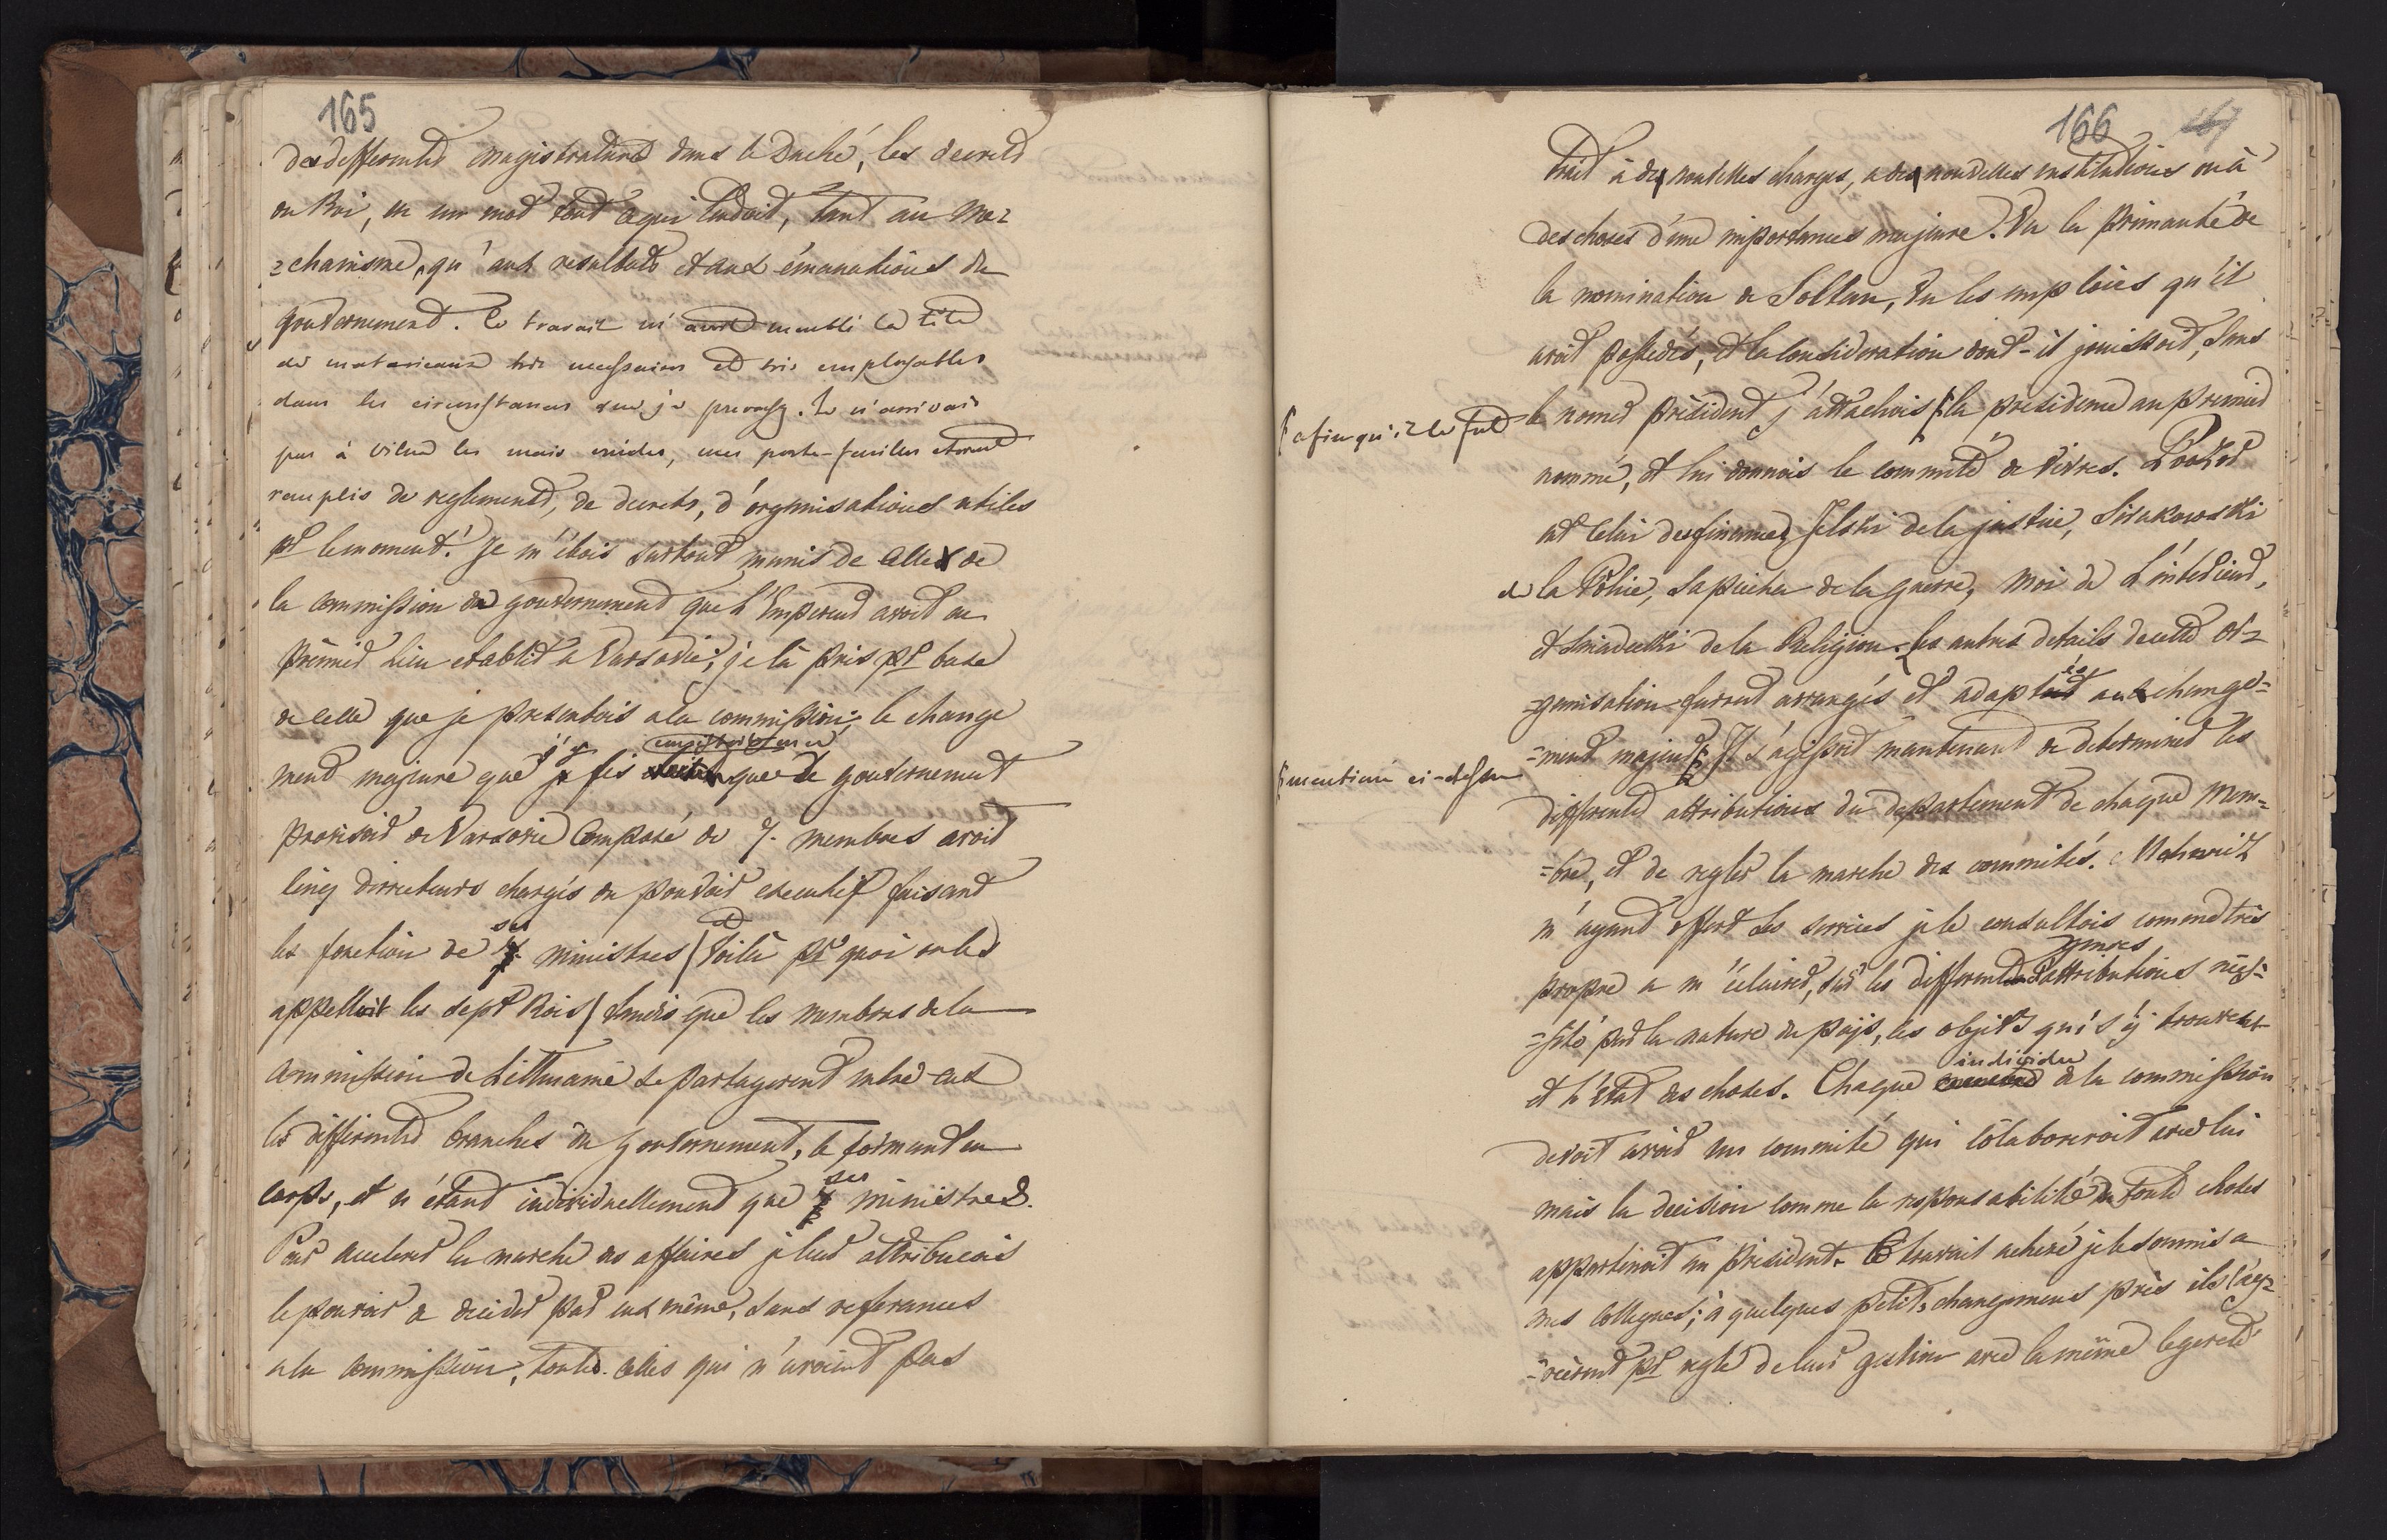 165
des differentes magistratures dans le Duché, les decrets
du Roi, en un mot tout ce qui tendoit, tant au me=
=chanisme, qu'aux resultats et aux émanations du
gouvernement. Ce travail m' meubli la tête
de materieaux très necessaires et très employables
dans les circonstances que je prevoiois. Je n'arrivais
pas à Vilna les mais vuides, mes porte-feuilles etoient
remplis de reglements, de decrets, d'organisations utiles
pr le moment. Je m'étois surtout munis de celle de
la commission du gouvernement que l'Empereur avoit en
premier lieu etablit a Varsovie; je la pris pr base
de celle que je presentois a la commission; le change
ment majeure que j'y fis que le gouvernement
provisoir de Varsovie composé de 7. membres avoit
cinq directeurs chargés du pouvoir executif faisant
les fonction de ses ministres / voilà pr quoi on les
appelloit les sept Rois / tandis que les membres de la
Commission de Lithuanie se partagerent entre eux
les differentes branches du gouvernement, le formant en
corps, et n'étant individuellement que ses ministres.
Pour accelerer la marche des affaires je leur attribuois
le pouvoir de decider par eux même, sans referances
a la commission, toutes celles qui n'avoient pas
166 167
trait à des nouvelles charges, a des nouvelles institutions ou à
des choses d'une importance majeure. Vu la primauté de
la nomination de Soltan, vu les emplois qu'il
avoit possedés, et la consideration dont-il jouissoit, sans
le nomer président j'attachois la presidence au premier
afin qu'il le fut
nommé, et lui donnois le committé de vivres. Potocki
eut celui des finances, Jelski de la justice, Sirakowski
de la Police, Sapieha de la guerre, moi de l'intérieur,
et Sniadecki de la Religion. Les autres details de cette or=
=ganisation furrent arrangés et adaptés aux change=
=ment majeur. Il s'agissoit maintenant de determiner les
mentioné ci-dessu
differentes attributions du departement de chaque mem=
=bre, et de regler la marche des committés.
m'ayant offert ses services je le consultois comme très
propre a m'éclairer, sur les differents genres d'attributions
par la nature du pays, les objets qui s'y trouvent
et l'Etat des choses. Chaque individu de la commission
devoit avoir un committé qui colaboreroit avec lui
mais la decision comme la responsabilité en toute choses
appartenoit au président. Ce travail achevé je le soumis a
mes collegues; à quelques petits changemens près ils l'ag=
=réerent pr regle de leur gestion avec la même legereté